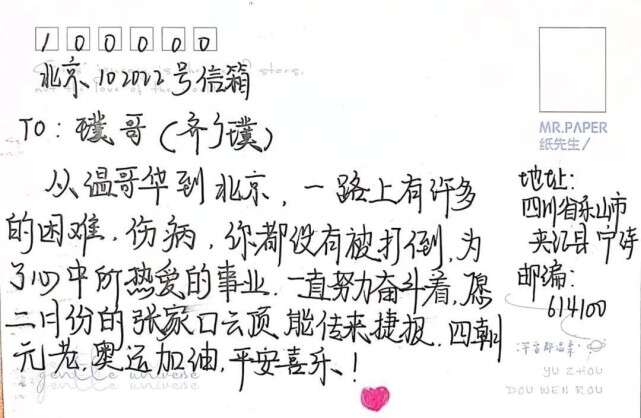 100000
北京102022号信箱
TO: 璞哥(齐广璞)
从温哥华到北京,一路上有许多
的困难.伤病,你都没有被打倒,为
了心中所热爱的事业.一直努力奋斗着,愿
二月份的张家口云顶,能传来捷报.四朝
元老,奥运加油,平安喜乐!
MR.PAPER
纸先生/
地址:
四川省乐山市
夹江县
邮编:
614100
宇宙都温柔
YU ZHOU
DOU WEN ROU
gentle universe